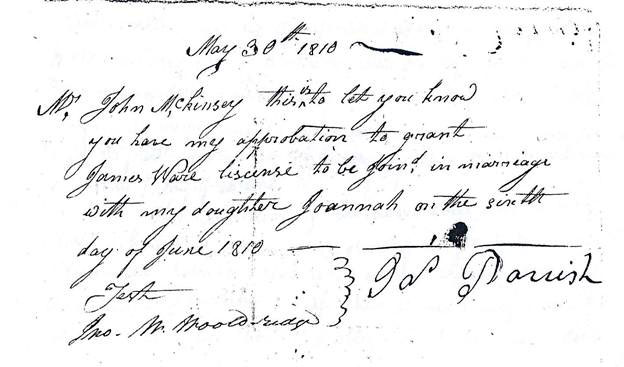 May 30th 1810
Mr. John McKinsey this is to let you know
you have my approbation to grant
James Ware liscense to be Join'd in marriage
with my daughter Joannah on the sixth
day of June 1810
Test
Jas Parrish
Jno. W. Wooldridge